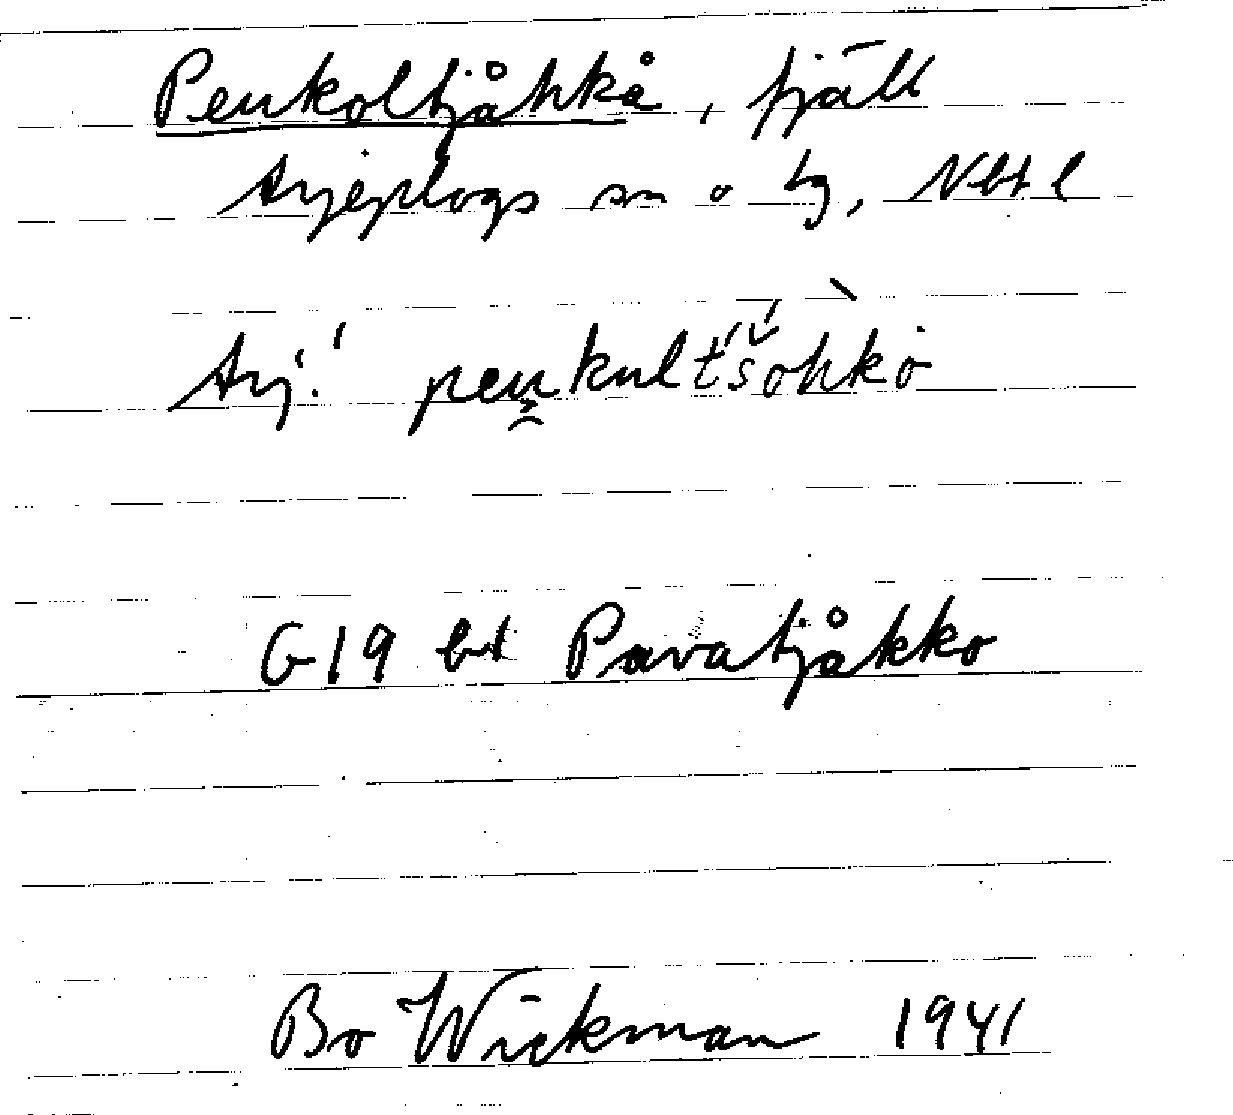 Penkoltjåhkå, fjäll
Arjeplogs sn o tg, Nbt l
Arj.' penkultʹšʹohkò
G19 bt Pavatjåkko
Bo Wickman 1941